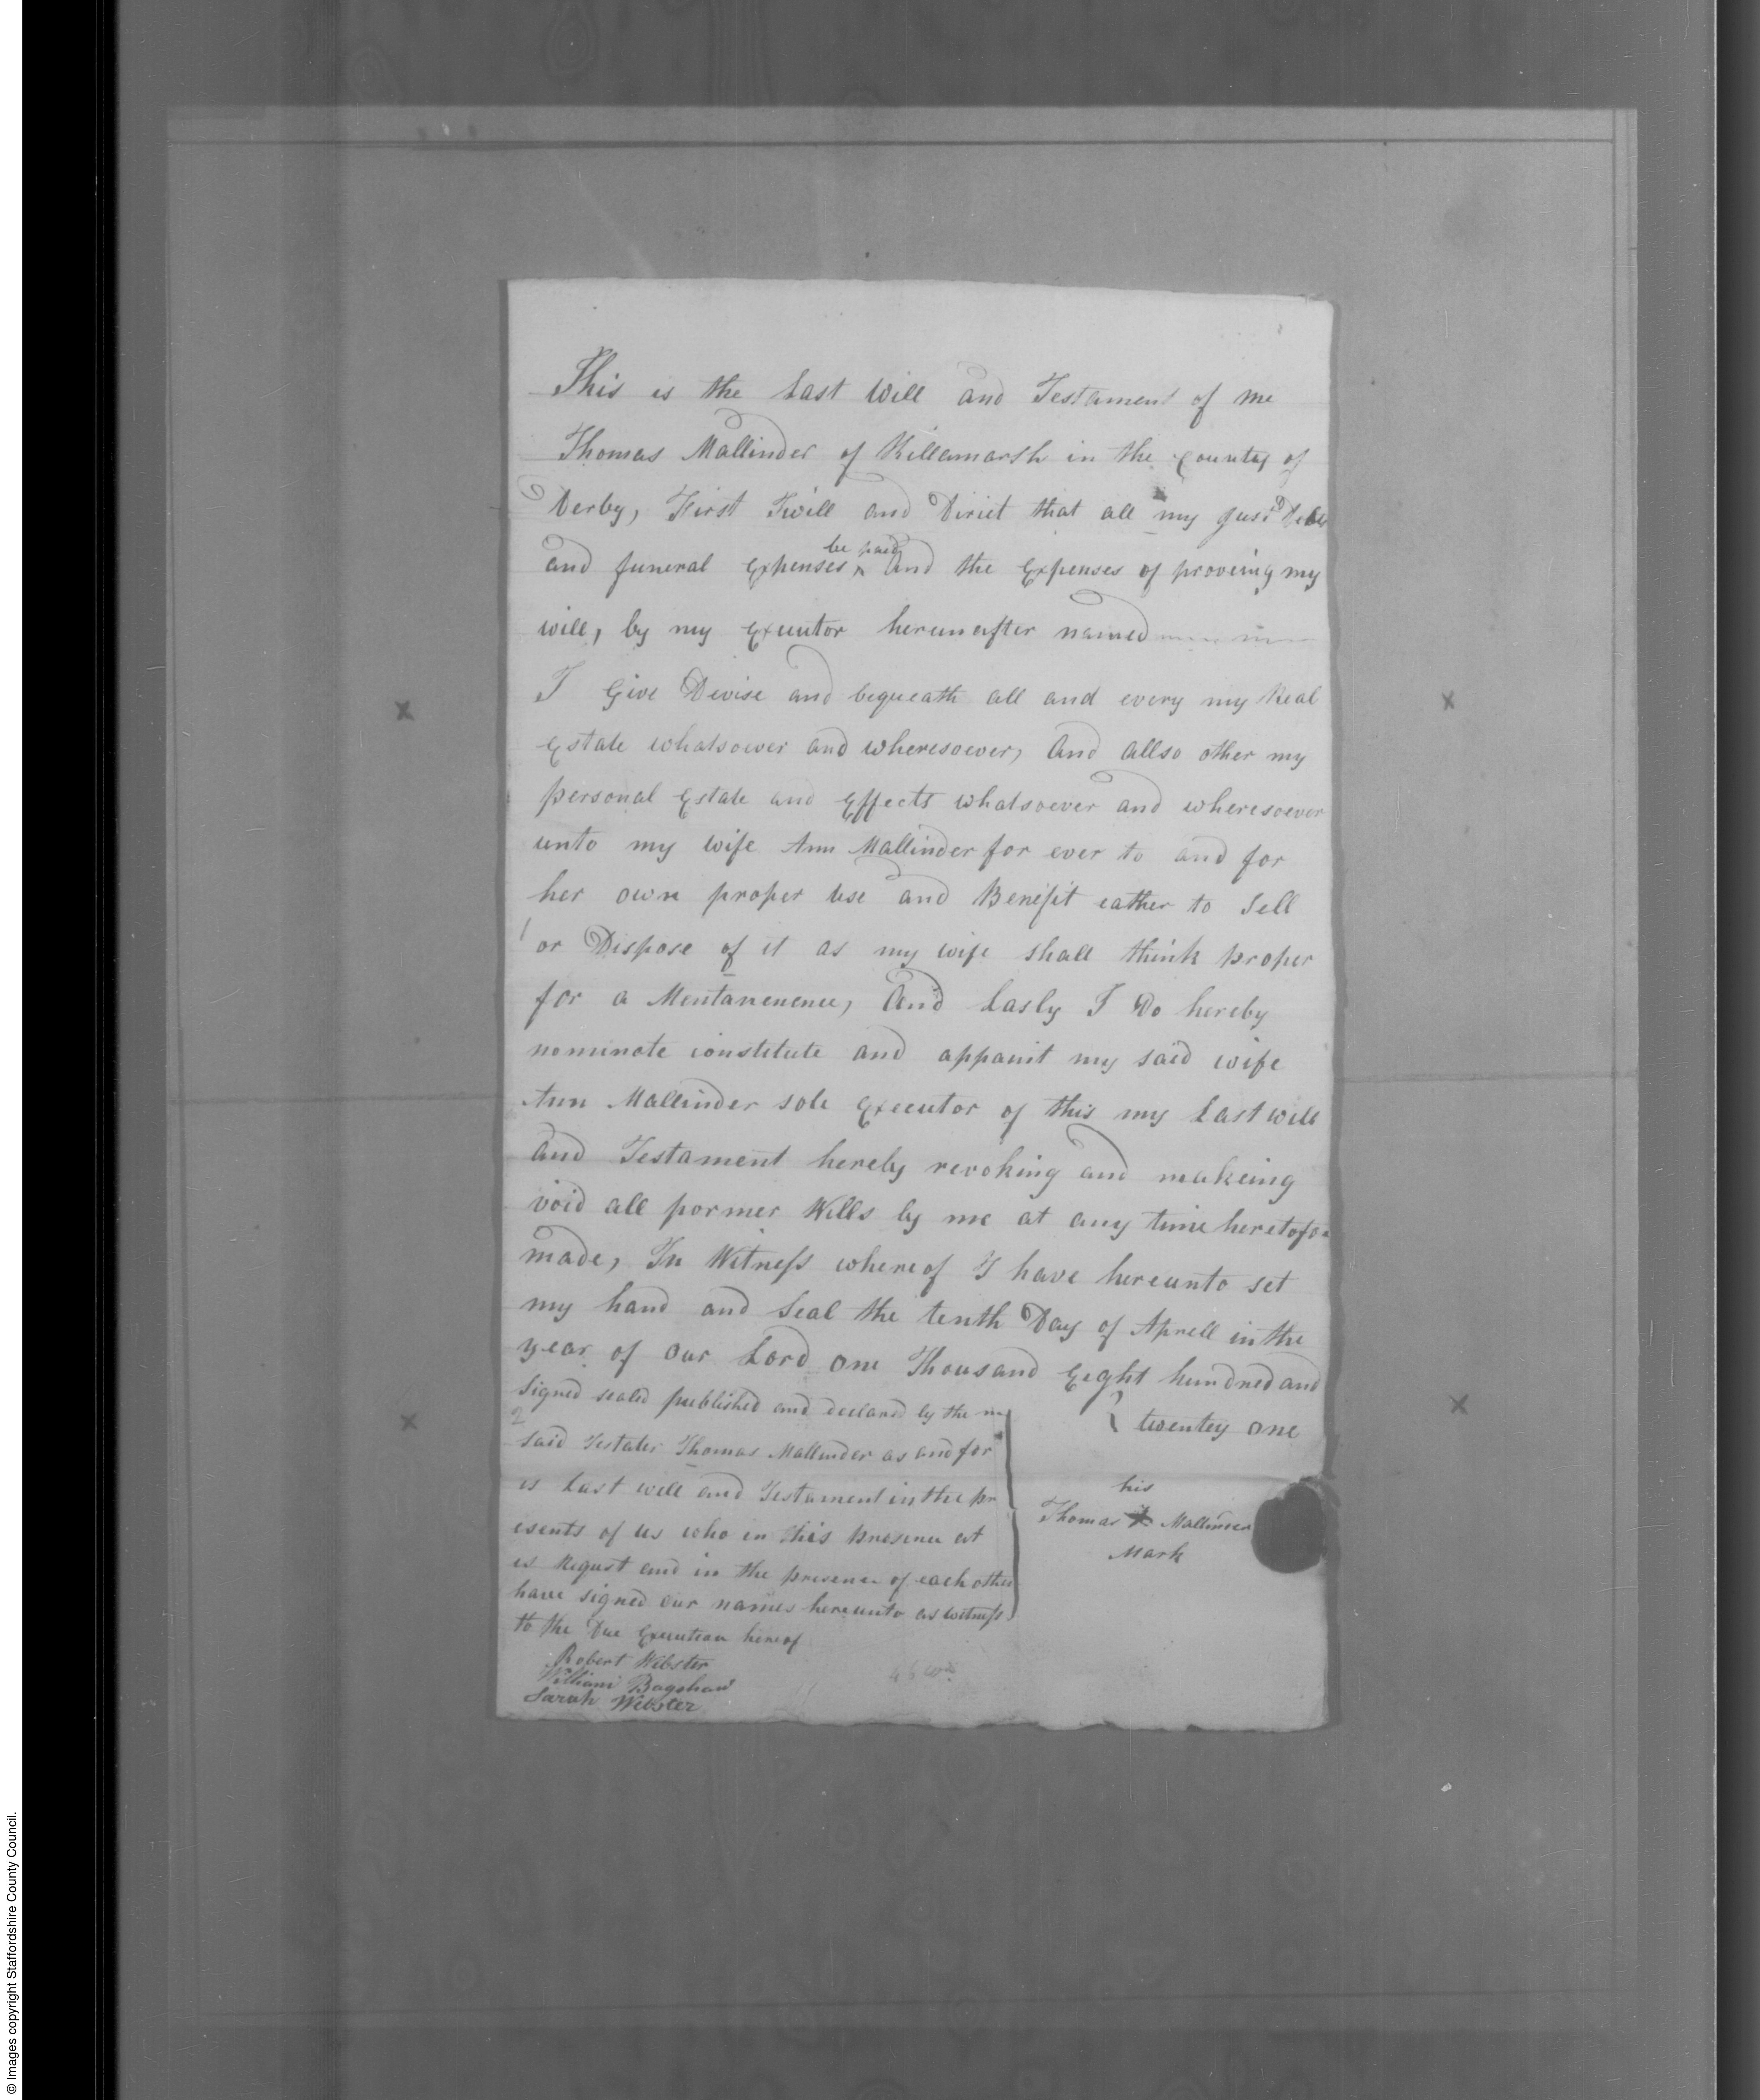 This is the Last Will and Testament of me
Thomas Mallinder of Killamarsh in the County of
Derby, First I will and Dirict that all my just Debts
and funeral Expenses ^be paid^ and the Expenses of proveing my
will, by my Exeutor hereunafter named
I Give Devise and bequeath all and every my Real
Estate whatsoever and wheresoever, And allso other my
personal Estate and Effects whatsoever and wheresoever
unto my wife Ann Mallinder for ever to and for
her own proper use and Benefit eather to Sell
or Dispose of it as my wife shall think proper
for a , And Lasly I Do hereby
nominate constitute and appount my said wife
Ann Mallinder sole Executor of this my Last will
and Testament hereby revoking and makeing
void all pormer Wills by me at any time heretofo
made, In Witness whereof I have hereunto set
my hand and Seal the tenth Day of Aprell in the
year of our Lord one Thousand Eeght hundred and
twentey one
Signed sealed published and declared by the
2
said Testater Thomas Mallinder as and for
is Last will and Testament in the pr
esents of us who in this presence at
is Request and in the presence of each other
have signed our names hereunto as witness
to the Due Execution hereof
Robert Webster
William Bagshaw
Sarah Webster
his
Thomas X Mallinder
Mark
© Images copyright Staffordshire County Council.